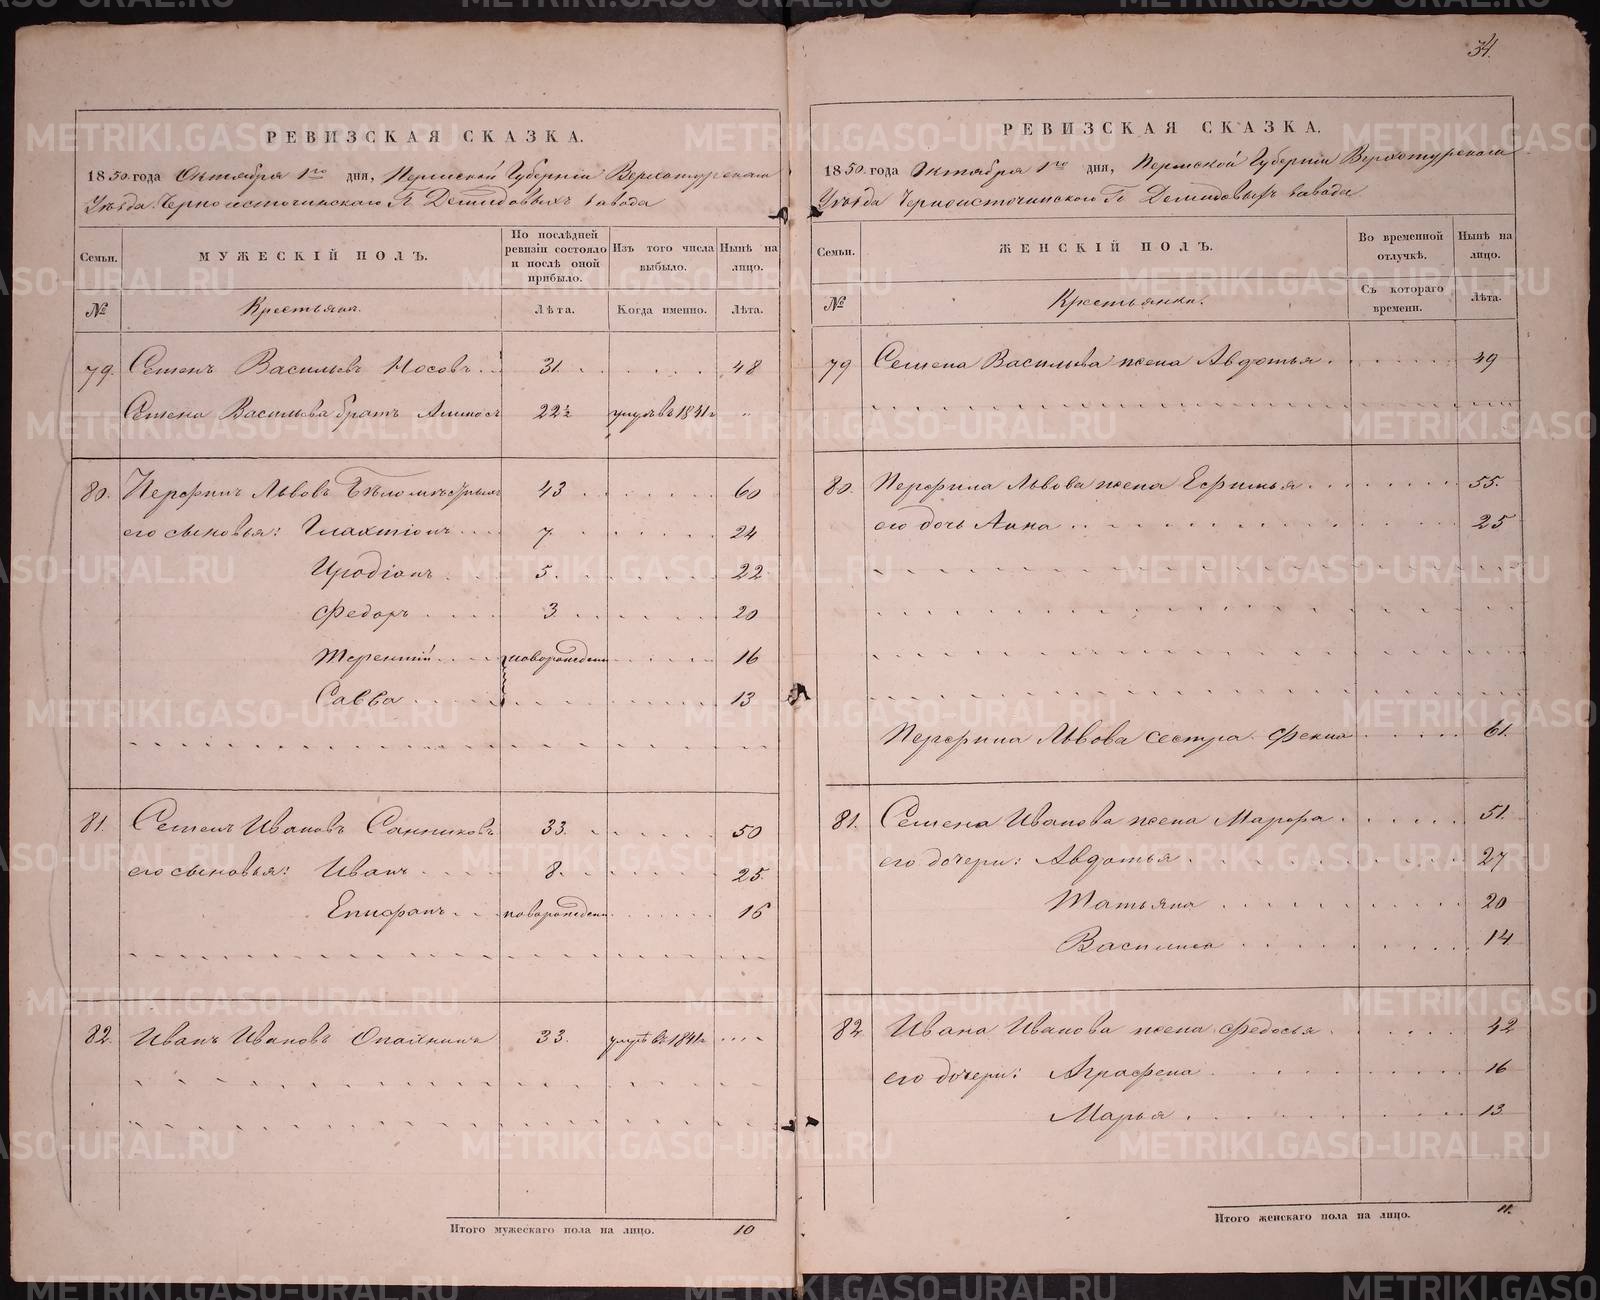 34.
РЕВИЗСКАЯ СКАЗКА.
1850. года Октября 1го дня, Пермской Губерніи Верхотурскаго
Уѣзда Черноисточинскаго Г. Демидовыхъ завода
Семьи. МУЖЕСКІЙ ПОЛЪ. По послѣдней ревизіи состояло и послѣ оной прибыло. Изъ того числа выбыло. Нынѣ на лицо.
№ Крестьяне. Лѣта. Когда именно. Лѣта.
79. Семенъ Васильевъ Носовъ 31. 48
Семена Васильева братъ 22½ умръ въ 1841г
80. Перфилъ Львовъ 43 60
его сыновья: Галахтіонъ 7. 24
Иродіонъ 5. 22
Федоръ 3. 20
Терентій новорожден 16
Савва 13
81. Семенъ Ивановъ Санниковъ 33. 50
его сыновья: Иванъ 8. 25
Епифанъ новорожден 16
82. Иванъ Ивановъ 33. умръ въ 1841г
Итого мужескаго пола на лицо. 10
РЕВИЗСКАЯ СКАЗКА.
1850. года Октября 1го дня, Пермской Губерніи Верхотурскаго
Уѣзда Черноисточинскаго Г. Демидовыхъ завода
Семьи. ЖЕНСКІЙ ПОЛЪ. Во временной отлучкѣ. Нынѣ на лицо.
№ Крестьянки. Съ котораго времени. Лѣта.
79 Семена Васильева жена Авдотья 49
80. Перфила Львова жена Ефимья 55.
его дочь Анна 25
Перфила Львова сестра Фекла 61.
81. Семена Иванова жена Марфа 51.
его дочери: Авдотья 27
Татьяна 20
Василиса 14
82. Ивана Иванова жена Федосья 42
его дочери: Аграфена 16
Марья 13.
Итого женскаго пола на лицо. 11.
METRIKI.GASO-URAL.RU